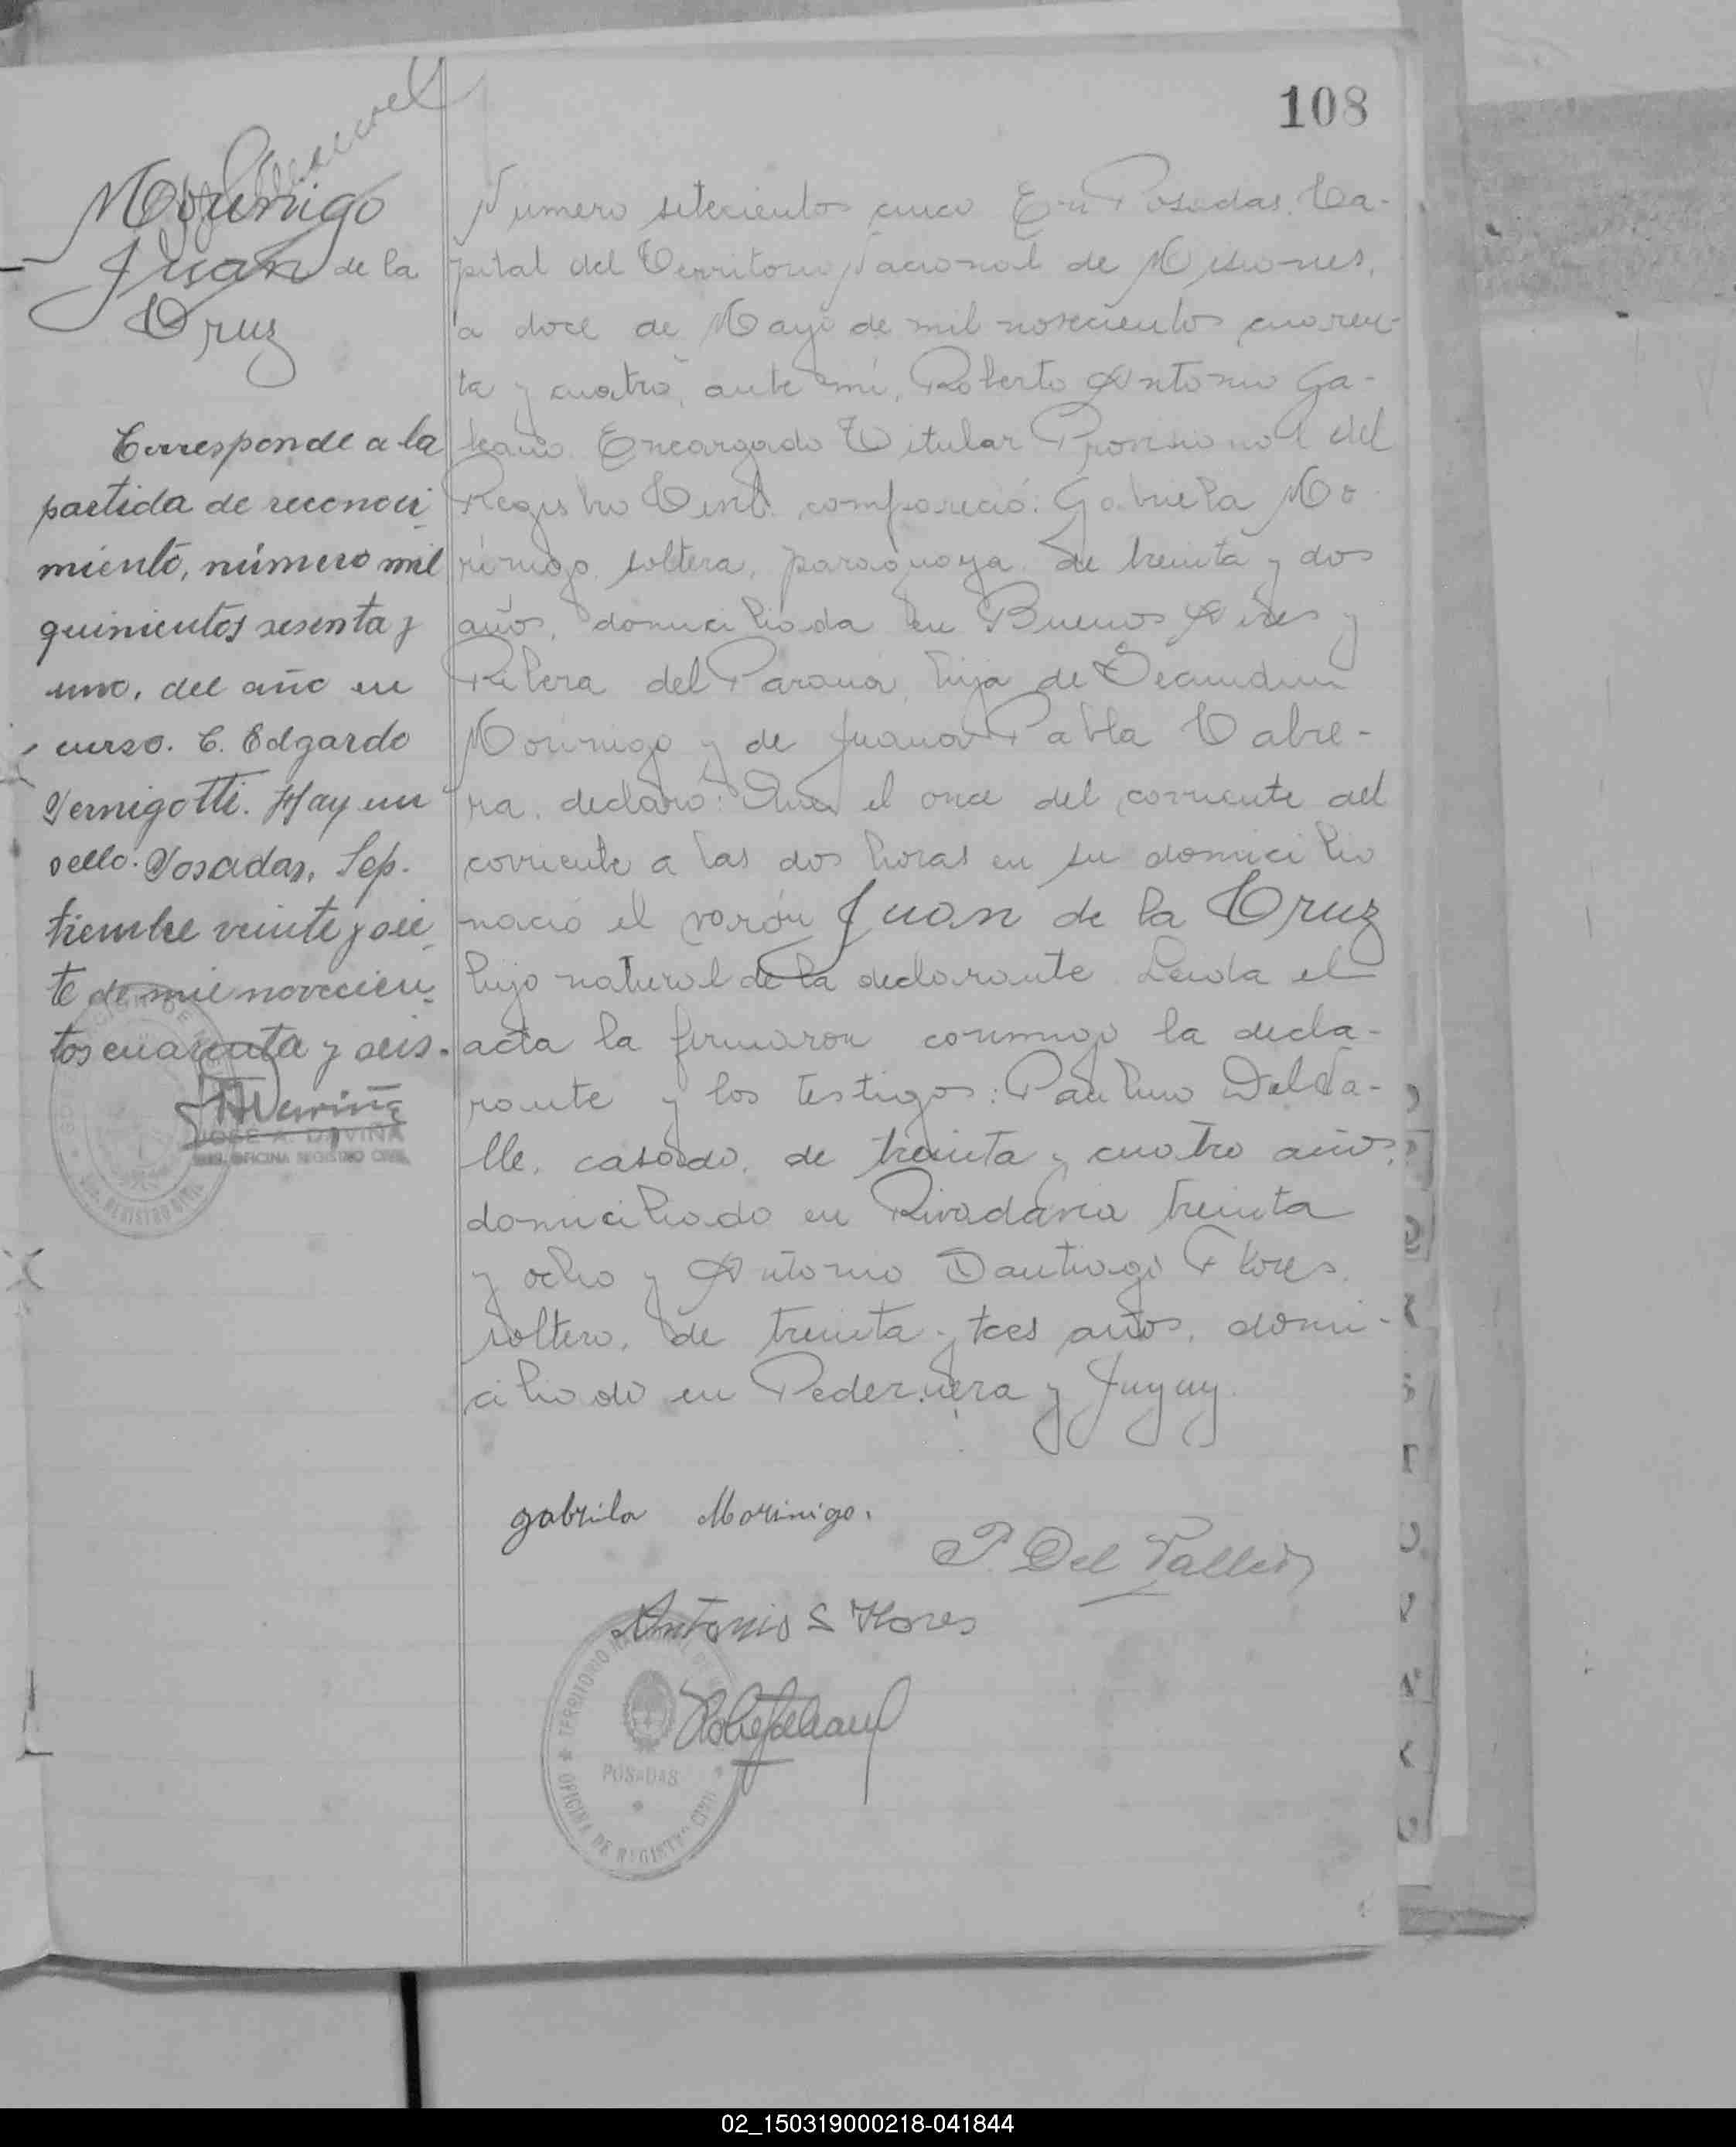 108
Morinigo
Juan de la
Cruz
Corresponde a la
partida de reconoci
miento, número mil
quinientos sesenta y
uno, del año en
curso. C. Edgardo
Vernigotti. Hay un
sello. Posadas, Sep.
tiembre veinte y sie
te de mil novecien
tos cuarenta y seis.
JOSE A. DAVIÑA
OFICINA REGISTRO CIVIL
Numero setecientos cinco En Posadas. Ca-
pital del Territorio Nacional de Misiones,
a doce de Mayo de mil novecientos cuaren-
ta y cuatro, ante mi, Roberto Antonio Ga-
leano Encargado Titular Provisional del
Registro Civil. compareció: Gabriela Mo
rinigo soltera, paraguaya de treinta y dos
años, domiciliada en Buenos Aires y
Ribera del Paraná hija de
Morinigo y de Juana Pabla Cabre-
ra, declaró: Que el once del corriente del
corriente a las dos horas en su domicilio
nació el varón Juan de la Cruz
hijo natural de la declarante Leida el
acta la firmaron conmigo la decla-
rante y los testigos: Paulino DelVa-
lle, casado, de treinta y cuatro años,
domiciliado en Rivadavia treinta
y ocho y Antonio Santiago Flores,
soltero, de treinta y tres años, domi-
ciliado en Pedernera y Jujuy.
gabrila Morinigo.
P. Del Valle
Antonio S Flores
TERRITORIO NACIONAL DE
POSADAS
OFICINA DE REGISTRO CIVIL
02_150319000218-041844